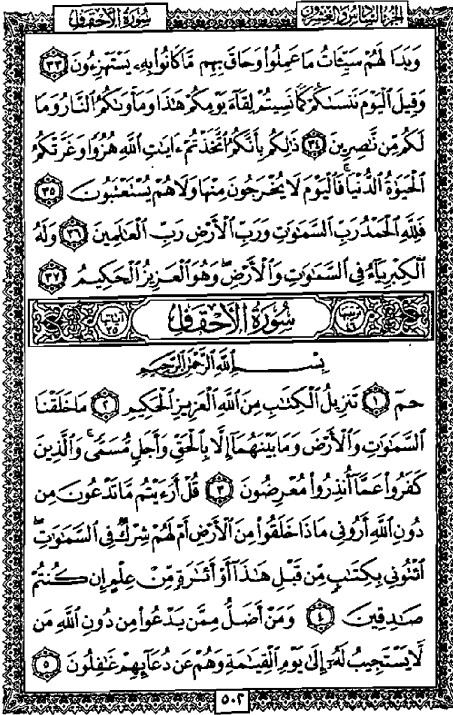 سُورَةُ الأَحْقَافِ
الجزء السادس والعشرون
وَبَدَا لَهُمْ سَيِّئَاتُ مَا عَمِلُوا۟ وَحَاقَ بِهِم مَّا كَانُوا۟ بِهِۦ يَسْتَهْزِءُونَ ٣٣
وَقِيلَ ٱلْيَوْمَ نَنسَىٰكُمْ كَمَا نَسِيتُمْ لِقَآءَ يَوْمِكُمْ هَٰذَا وَمَأْوَىٰكُمُ ٱلنَّارُ وَمَا
لَكُم مِّن نَّٰصِرِينَ ٣٤ ذَٰلِكُم بِأَنَّكُمُ ٱتَّخَذْتُمْ ءَايَٰتِ ٱللَّهِ هُزُوًا وَغَرَّتْكُمُ
ٱلْحَيَوٰةُ ٱلدُّنْيَا ۚ فَٱلْيَوْمَ لَا يُخْرَجُونَ مِنْهَا وَلَا هُمْ يُسْتَعْتَبُونَ ٣٥
فَلِلَّهِ ٱلْحَمْدُ رَبِّ ٱلسَّمَٰوَٰتِ وَرَبِّ ٱلْأَرْضِ رَبِّ ٱلْعَٰلَمِينَ ٣٦ وَلَهُ
ٱلْكِبْرِيَآءُ فِى ٱلسَّمَٰوَٰتِ وَٱلْأَرْضِ ۖ وَهُوَ ٱلْعَزِيزُ ٱلْحَكِيمُ ٣٧
سُورَةُ الأَحْقَافِ
بِسْمِ ٱللَّهِ ٱلرَّحْمَٰنِ ٱلرَّحِيمِ
حمٓ ١ تَنزِيلُ ٱلْكِتَٰبِ مِنَ ٱللَّهِ ٱلْعَزِيزِ ٱلْحَكِيمِ ٢ مَا خَلَقْنَا
ٱلسَّمَٰوَٰتِ وَٱلْأَرْضَ وَمَا بَيْنَهُمَآ إِلَّا بِٱلْحَقِّ وَأَجَلٍ مُّسَمًّى ۚ وَٱلَّذِينَ
كَفَرُوا۟ عَمَّآ أُنذِرُوا۟ مُعْرِضُونَ ٣ قُلْ أَرَءَيْتُم مَّا تَدْعُونَ مِن
دُونِ ٱللَّهِ أَرُونِى مَاذَا خَلَقُوا۟ مِنَ ٱلْأَرْضِ أَمْ لَهُمْ شِرْكٌ فِى ٱلسَّمَٰوَٰتِ ۖ
ٱئْتُونِى بِكِتَٰبٍ مِّن قَبْلِ هَٰذَآ أَوْ أَثَٰرَةٍ مِّنْ عِلْمٍ إِن كُنتُمْ
صَٰدِقِينَ ٤ وَمَنْ أَضَلُّ مِمَّن يَدْعُوا۟ مِن دُونِ ٱللَّهِ مَن
لَّا يَسْتَجِيبُ لَهُۥٓ إِلَىٰ يَوْمِ ٱلْقِيَٰمَةِ وَهُمْ عَن دُعَآئِهِمْ غَٰفِلُونَ ٥
٥٠٢